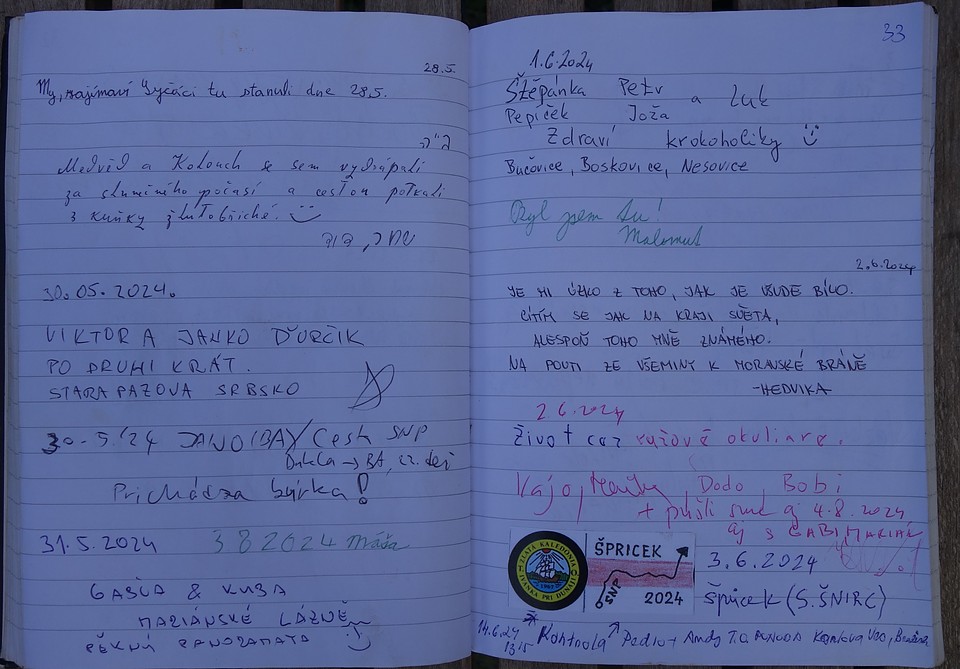 28.5.
My, najímaví tu stanuli dne 28.5.
Medvěd a Kolouch se sem vydrápali
za slunného počasí a cestou potkali
3 kuňky žlutobřiché. :)
30.05.2024.
VIKTOR A JANKO ĎURČIK
PO DRUHI KRÁT.
STARA PAZOVA SRBSKO
30.5.'24 JANO (BA) / Cesta SNP
Dukla → BA, 22. deň
Prichádza búrka!
31.5.2024 3 8 2024 Máša
GABČA & KUBA
MARIÁNSKÉ LÁZNĚ
PĚKNÁ PANORAMATA :)
33
1.6.2024
Štěpánka Petr a Luk
Pepíček Joža
Zdraví krokoholiky :)
Bučovice, Boskovice, Nesovice
Byl jsem tu!
Malamut
2.6.2024
JE MI ÚZKO Z TOHO, JAK JE VŠUDE BÍLO.
CÍTÍM SE JAK NA KRAJI SVĚTA,
ALESPOŇ TOHO MNĚ ZNÁMÉHO.
NA POUTI ZE VŠEMINY K MORAVSKÉ BRÁNĚ
-HEDVIKA-
2.6.2024
Život cez ružové okuliare.
Kajo, Dodo, Bobi
+ prišli sme aj 4.8.2024
aj s GABI, MARIÁN
ZLATÁ KALEDONIA
IVANKA PRI DUNAJI
ŠPRICEK
SNP
2024
3.6.2024
Špricek (S. ŠNIRC)
14.6.24
13 15 * Kontrola Pedro + Andy T.O.